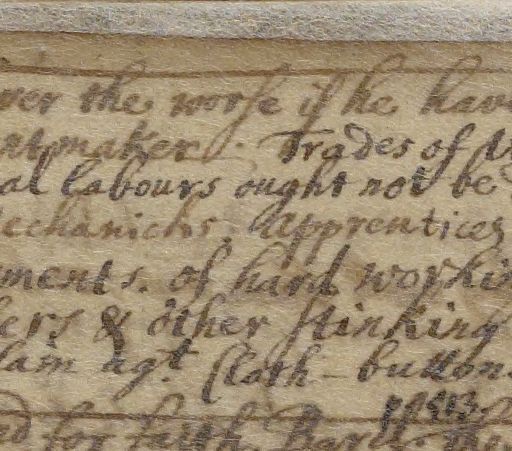 ver the worse if he hav
ntmaker. Trades of
al labours ought not be
echanicks. apprentices
ments. of hard workin
ers & other stinking
am agt. Cloth-button
p 413.
ed for faith